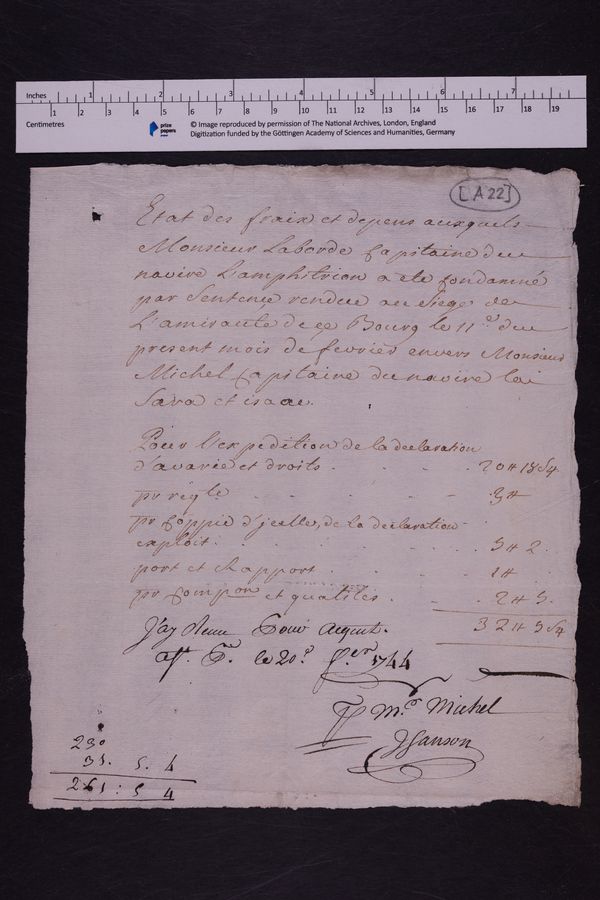 Inches 1 2 3 4 5 6 7
1 2 3 4 5 6 7 8 9 10 11 12 13 14 15 16 17 18 19
Centimetres
prize papers
© Image reproduced by permission of The National Archives, London, England
Digitization funded by the Göttingen Academy of Sciences and Humanities, Germany
[A 22]
Etat des fraix et depens auxquels
Monsieur Laborde Capitaine du
navire L'amphitrion a ete condamné
par Sentence rendue au Siege de
L'amiraute de ce Bourg le 11e du
present mois de fevrier envers Monsieur
Michel Capitaine du navire la
Sara et isaac.
Pour l'expedition de la declaration
d'avarie et droits . 20 ₶ 18 s 4
pr regle 3 ₶
pr Coppie d'jcelle, de la declaration
exploit . 5 ₶ 2
port et Rapport . 1 ₶
pr Compon et qualités . 2 ₶ 5
32 ₶ 5 s 4
J'ay Receu Pour acquit.
le 20e 1744
Mr Michel
JSanson
230
31. 5. 4
261 : 5 4